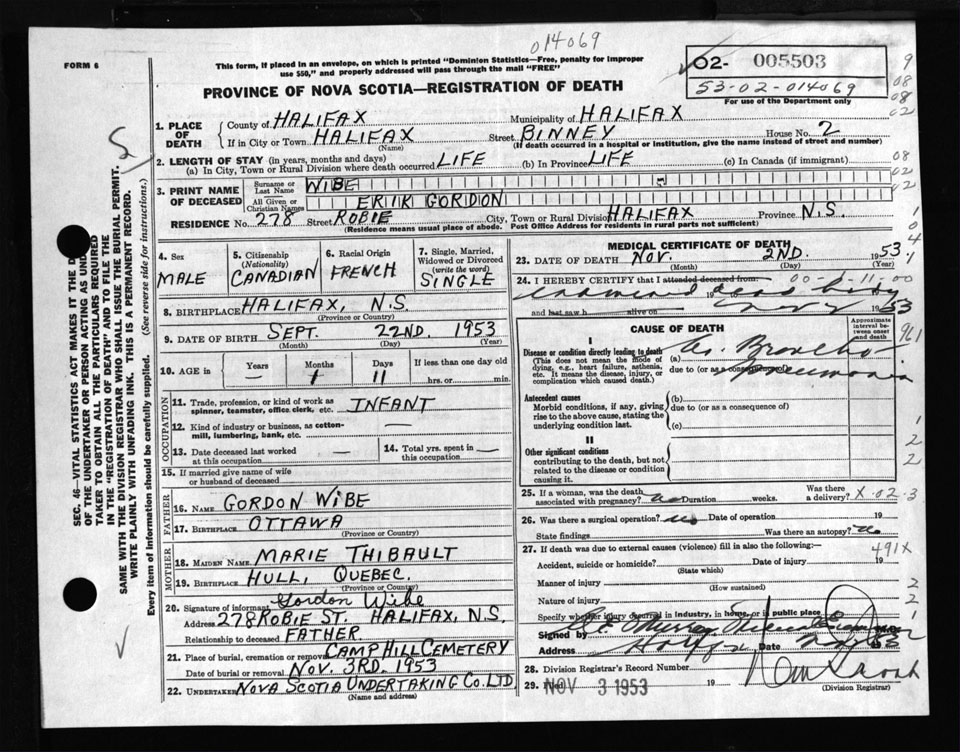 014069
FORM 6
This form, if placed in an envelope, on which is printed "Dominion Statistics—Free, penalty for improper
use $50," and properly addressed will pass through the mail "FREE"
02- 005503
53-02-014069
For use of the Department only
PROVINCE OF NOVA SCOTIA—REGISTRATION OF DEATH
1. PLACE OF DEATH
County of HALIFAX Municipality of HALIFAX
If in City or Town HALIFAX Street BINNEY House No. 2
(Name) (If death occurred in a hospital or institution, give the name instead of street and number)
2. LENGTH OF STAY (in years, months and days)
(a) In City, Town or Rural Division where death occurred LIFE (b) In Province LIFE (c) In Canada (if immigrant)
3. PRINT NAME OF DECEASED
Surname or Last Name WIBE
All Given or Christian Names ERIK GORDION
RESIDENCE No. 278 Street ROBIE City, Town or Rural Division HALIFAX Province N.S.
(Residence means usual place of abode. Post Office Address for residents in rural parts not sufficient)
4. Sex
MALE
5. Citizenship (Nationality)
CANADIAN
6. Racial Origin
FRENCH
7. Single, Married, Widowed or Divorced (write the word)
SINGLE
8. BIRTHPLACE HALIFAX, N.S.
(Province or Country)
9. DATE OF BIRTH SEPT. 22ND. 1953
(Month) (Day) (Year)
10. AGE IN Years Months Days If less than one day old
— 1 11 hrs. or min.
OCCUPATION
11. Trade, profession, or kind of work as
spinner, teamster, office clerk, etc. INFANT
12. Kind of industry or business, as cotton-
mill, lumbering, bank, etc. —
13. Date deceased last worked
at this occupation —
14. Total yrs. spent in
this occupation —
15. If married give name of wife
or husband of deceased
FATHER
16. NAME GORDON WIBE
17. BIRTHPLACE OTTAWA
(Province or Country)
MOTHER
18. MAIDEN NAME MARIE THIBAULT
19. BIRTHPLACE HULL, QUEBEC.
(Province or Country)
20. Signature of informant Gordon Wibe
Address 278 ROBIE ST. HALIFAX, N.S.
Relationship to deceased FATHER.
21. Place of burial, cremation or removal CAMP HILL CEMETERY
Date of burial or removal NOV. 3RD. 1953
22. UNDERTAKER NOVA SCOTIA UNDERTAKING CO. LTD
(Name and address)
MEDICAL CERTIFICATE OF DEATH
23. DATE OF DEATH NOV. 2ND. 1953
(Month) (Day) (Year)
24. I HEREBY CERTIFY that I attended deceased from 00-1-11-00
19
and last saw h alive on 1953
CAUSE OF DEATH
Approximate interval between onset and death
I
Disease or condition directly leading to death
(This does not mean the mode of
dying, e.g., heart failure, asthenia,
etc. It means the disease, injury, or
complication which caused death.)
(a) Broncho
due to (or as consequence of) Pneumonia
Antecedent causes
Morbid conditions, if any, giving
rise to the above cause, stating the
underlying condition last.
(b)
due to (or as a consequence of)
(c)
II
Other significant conditions
contributing to the death, but not
related to the disease or condition
causing it.
25. If a woman, was the death
associated with pregnancy? no Duration weeks. Was there a delivery? X-02-3
26. Was there a surgical operation? no Date of operation 19
State findings Was there an autopsy? no
27. If death was due to external causes (violence) fill in also the following:— 491X
Accident, suicide or homicide? Date of injury 19
(State which)
Manner of injury
(How sustained)
Nature of injury
Specify whether injury occurred in industry, in home, or in public place
Signed by
Address Halifax Date 53
28. Division Registrar's Record Number
29. Filed NOV 3 1953 19
(Division Registrar)
SEC. 46—VITAL STATISTICS ACT MAKES IT THE
OF THE UNDERTAKER OR PERSON ACTING AS
TAKER TO OBTAIN ALL THE PARTICULARS REQUIRED
IN THE "REGISTRATION OF DEATH" AND TO FILE THE
SAME WITH THE DIVISION REGISTRAR WHO SHALL ISSUE THE BURIAL PERMIT.
WRITE PLAINLY WITH UNFADING INK. THIS IS A PERMANENT RECORD.
Every item of information should be carefully supplied. (See reverse side for instructions.)